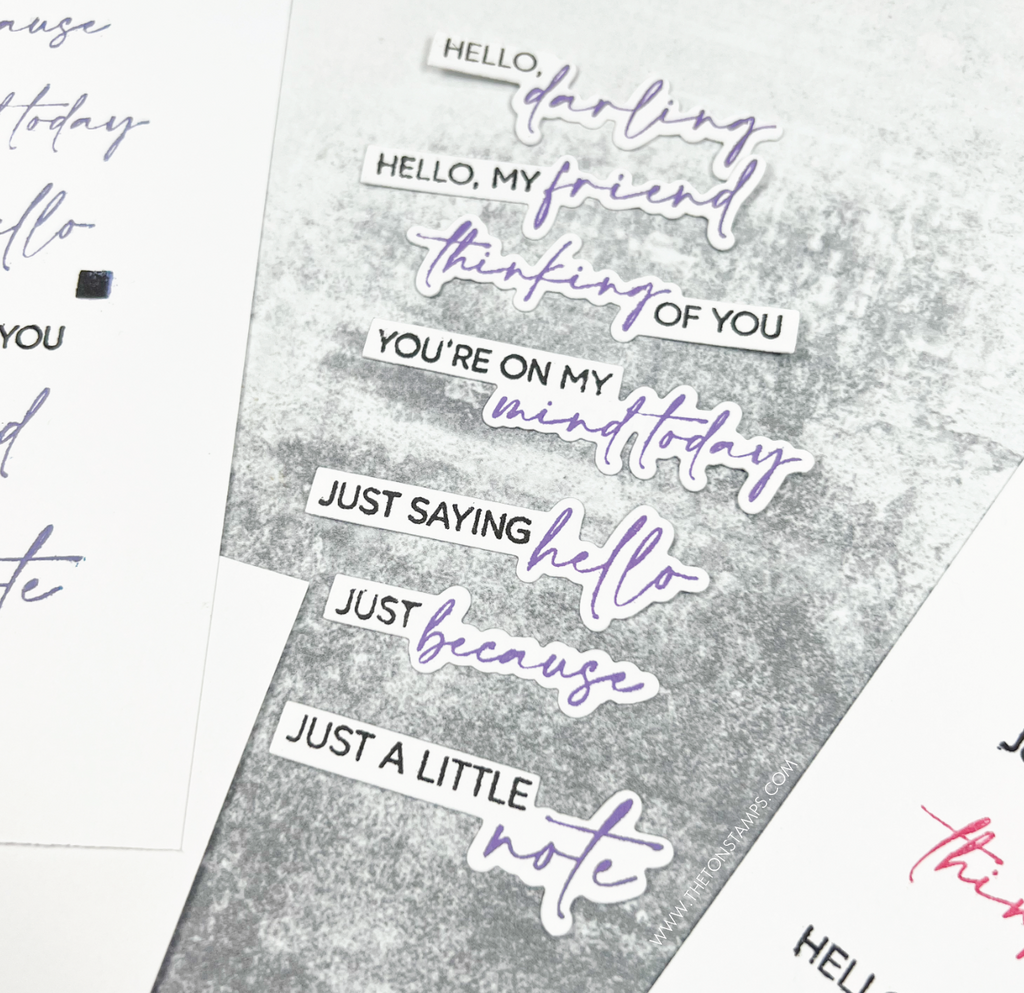 HELLO,
darling
HELLO, MY friend
thinking
OF YOU
YOU'RE ON MY
mind today
JUST SAYING hello
JUST because
JUST A LITTLE
note
today
YOU
WWW.THETONSTAMPS.COM